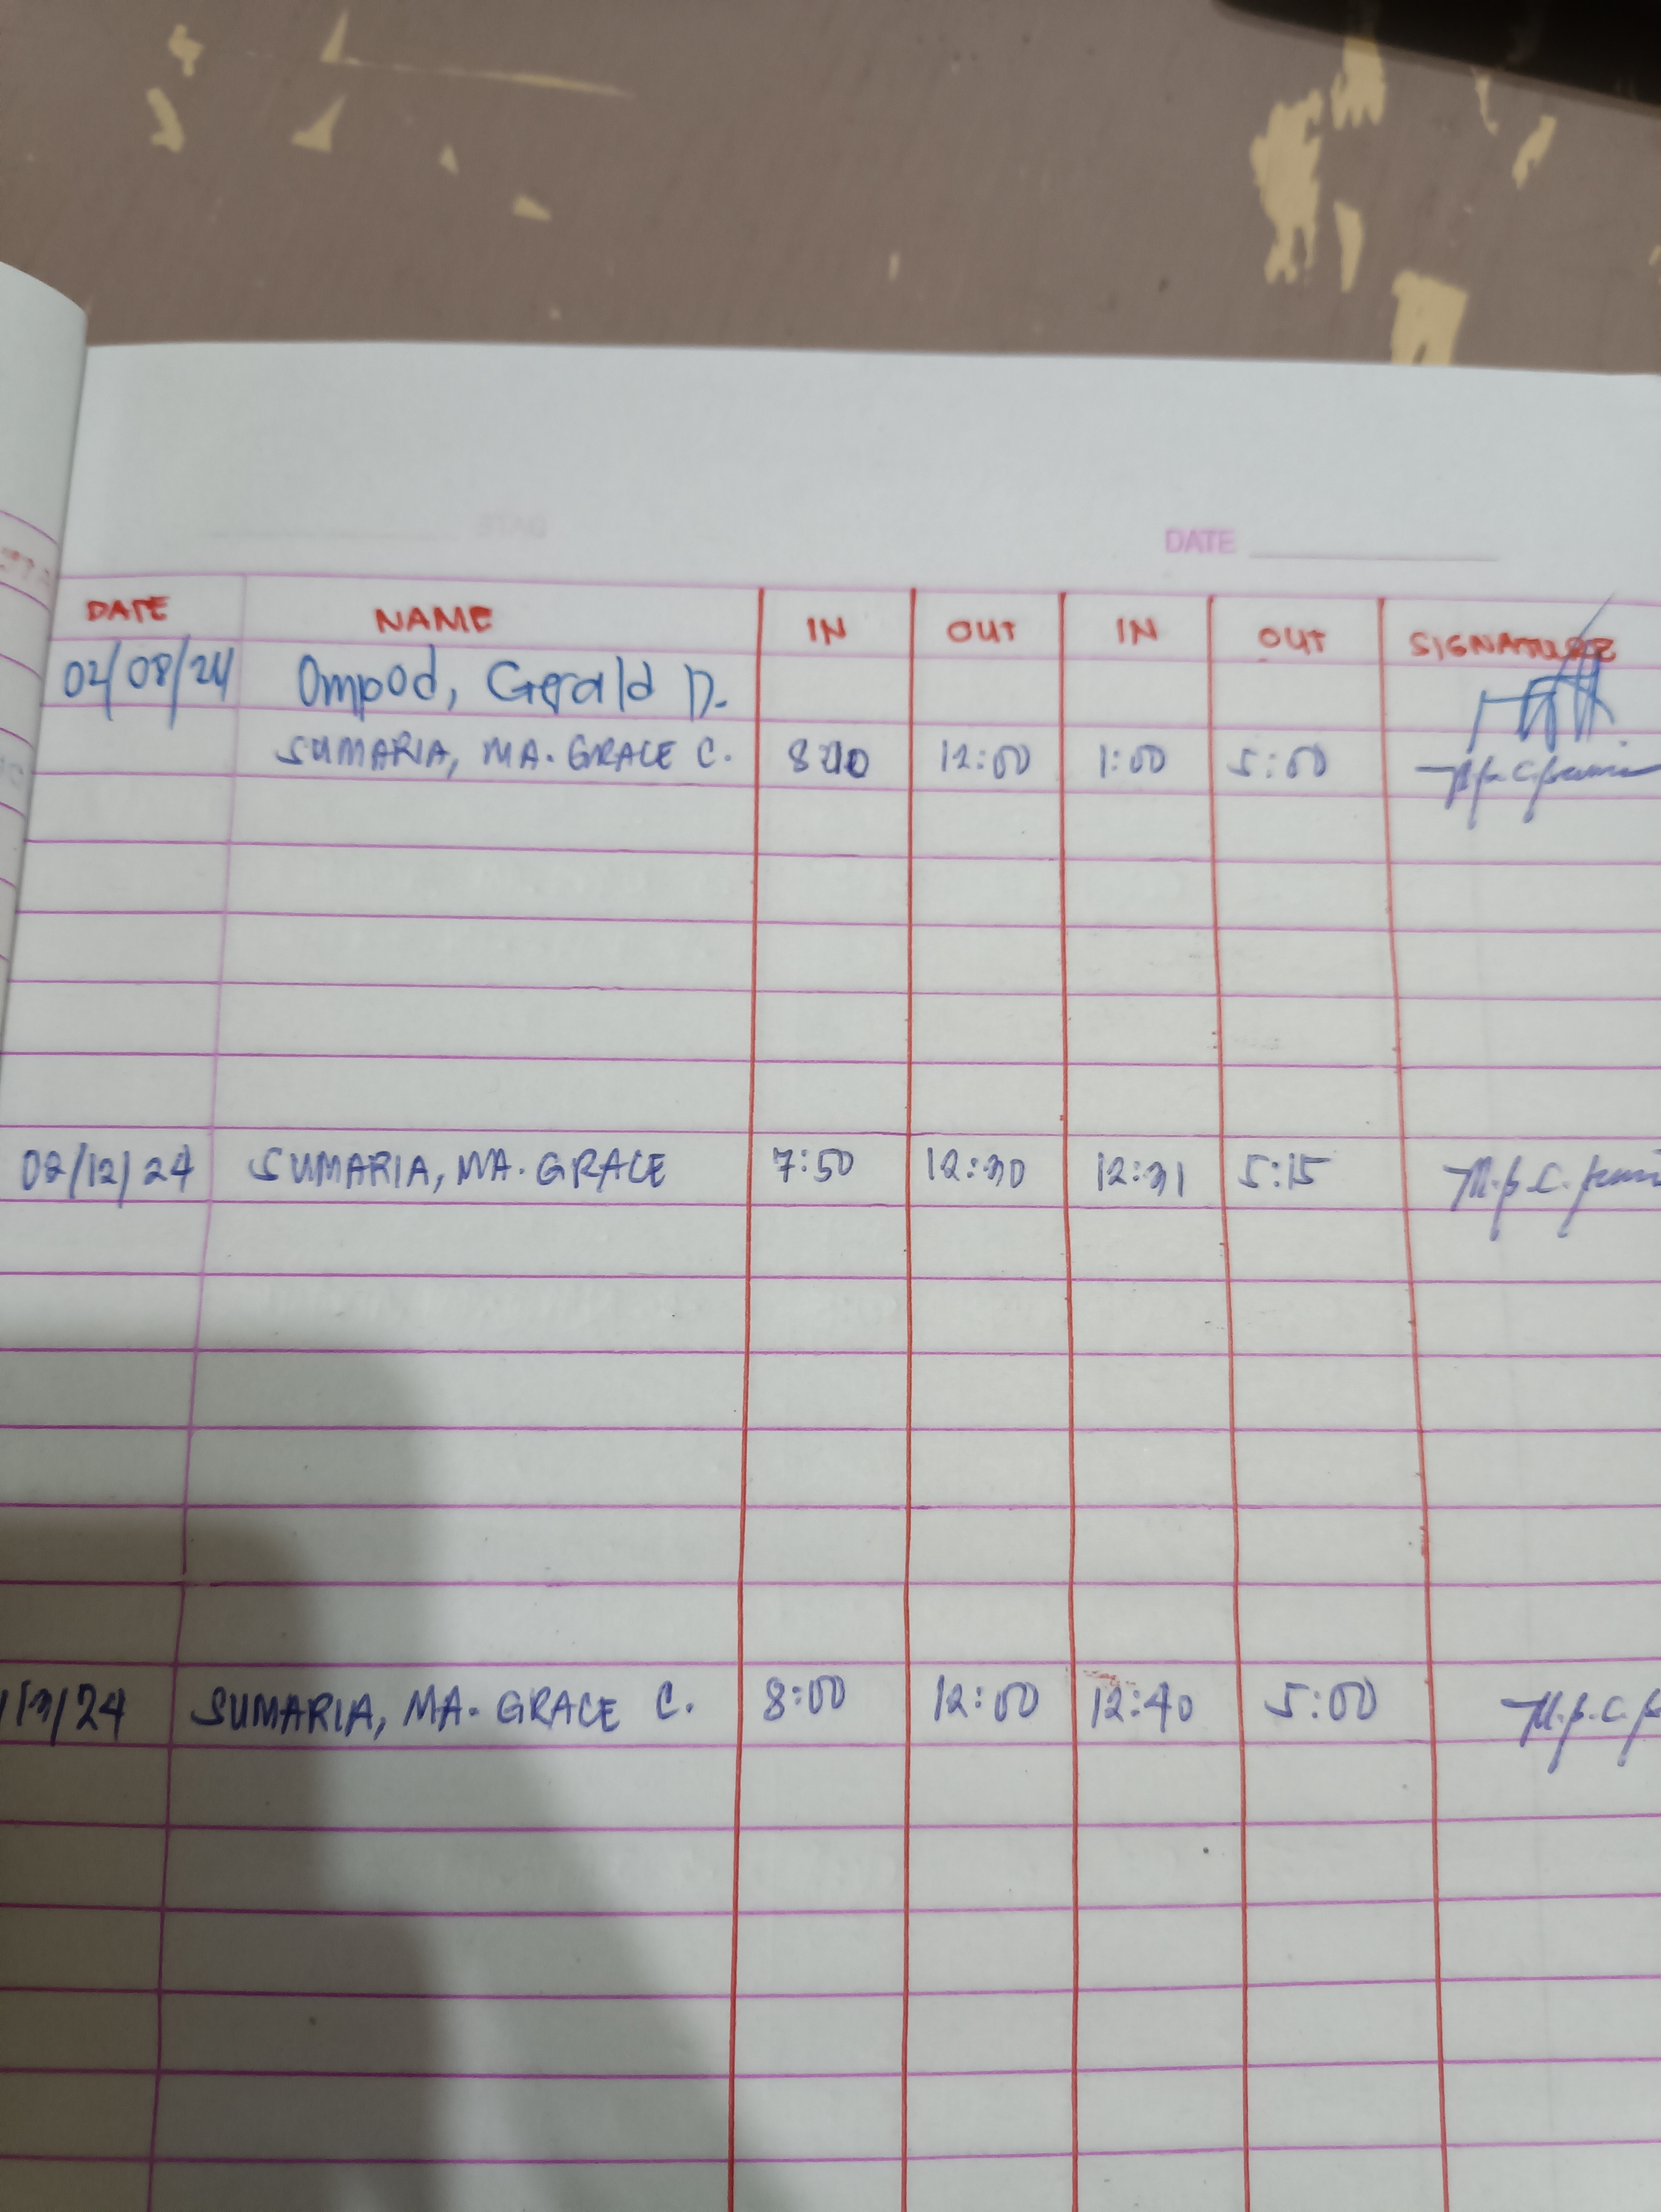 DATE
DATE NAME IN OUT IN OUT SIGNATURE
02/08/24 Ompod, Gerald D.
SUMARIA, MA. GRACE C. 12:00 1:00 5:00
02/12/24 SUMARIA, MA. GRACE 7:50 12:30 12:31 5:15
/13/24 SUMARIA, MA. GRACE C. 8:00 12:00 12:40 5:00